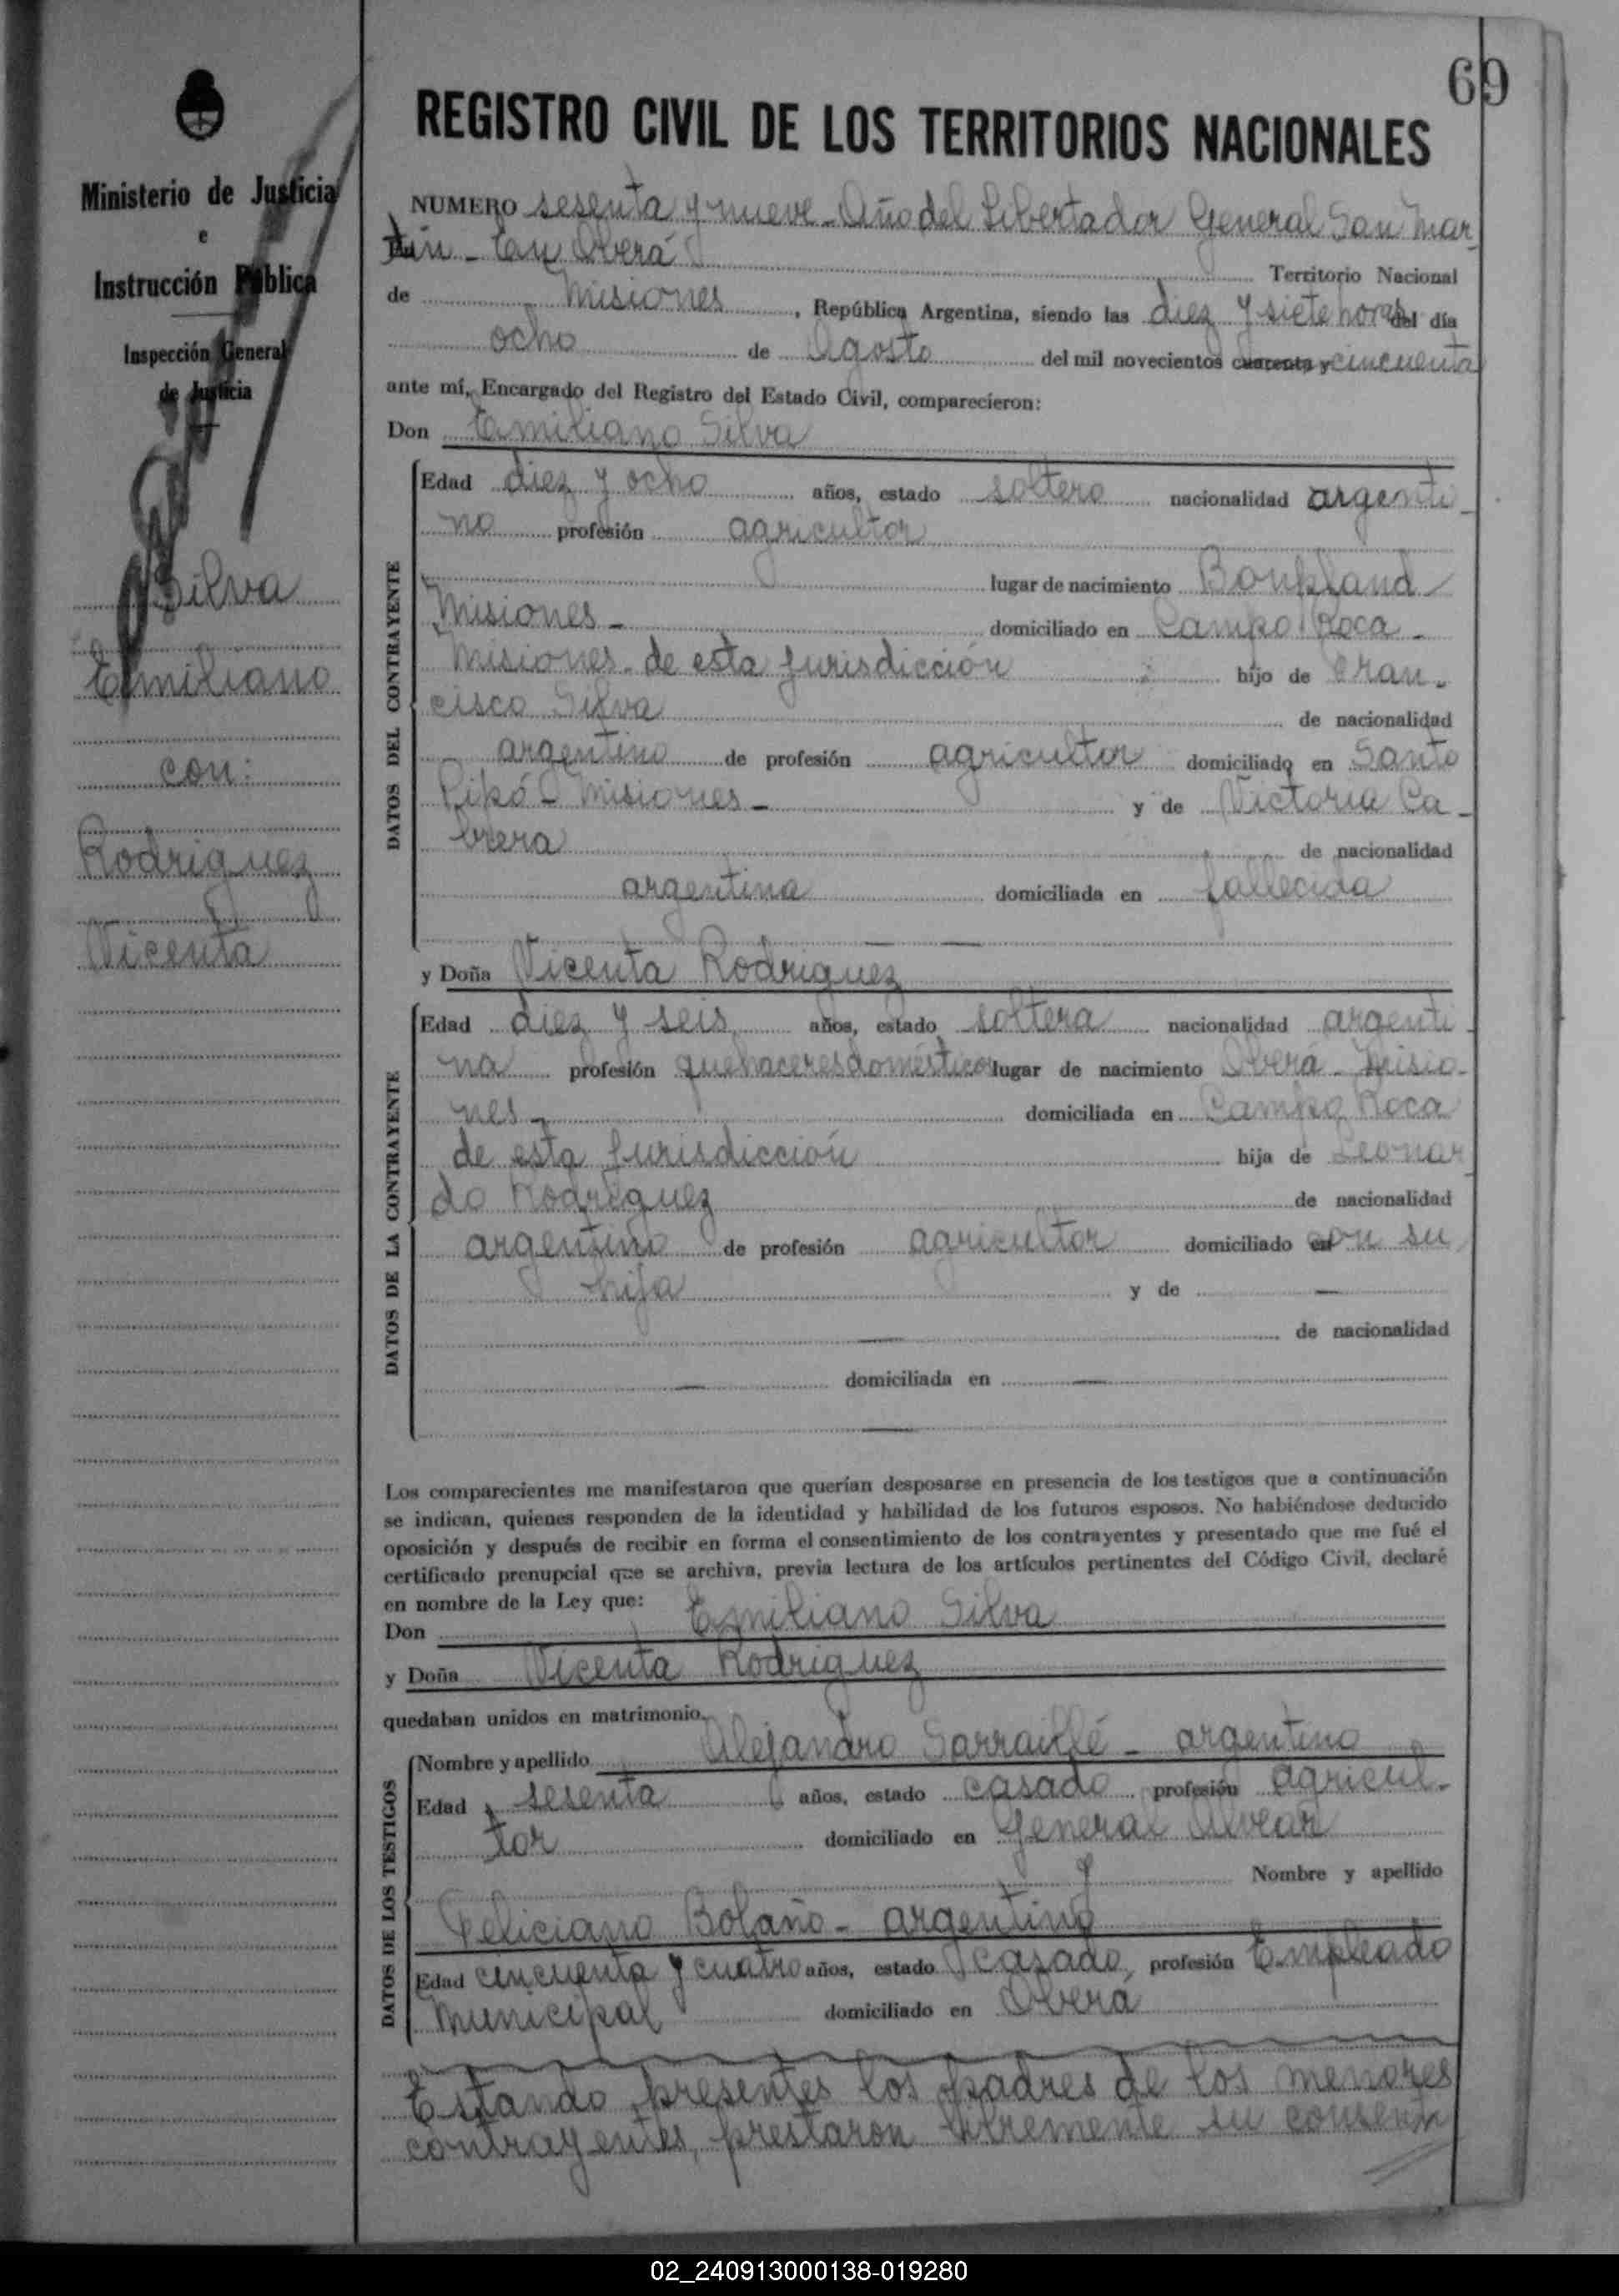 69
Ministerio de Justicia
e
Instrucción Pública
Inspección General
de Justicia
Silva
Emiliano
con:
Rodriguez
Vicenta
REGISTRO CIVIL DE LOS TERRITORIOS NACIONALES
NUMERO sesenta y nueve - Año del Libertador General San Mar-
tín - En Oberá Territorio Nacional
de Misiones, República Argentina, siendo las diez y siete horas del día
ocho de Agosto del mil novecientos cuarenta y cincuenta
ante mí, Encargado del Registro del Estado Civil, comparecieron:
Don Emiliano Silva
DATOS DEL CONTRAYENTE
Edad diez y ocho años, estado soltero nacionalidad argenti-
no profesión agricultor
lugar de nacimiento Bonpland
Misiones - domiciliado en Campo Roca -
Misiones - de esta jurisdicción hijo de Fran-
cisco Silva de nacionalidad
argentino de profesión agricultor domiciliado en Santo
Pipó - Misiones - y de Victoria Ca-
brera de nacionalidad
argentina domiciliada en fallecida
y Doña Vicenta Rodriguez
DATOS DE LA CONTRAYENTE
Edad diez y seis años, estado soltera nacionalidad argenti-
na profesión quehaceres domésticos lugar de nacimiento Oberá - Misio-
nes - domiciliada en Campo Roca
de esta jurisdicción hija de Leonar
do Rodriguez de nacionalidad
argentino de profesión agricultor domiciliado con su
hija y de —
— de nacionalidad
— domiciliada en —
—
Los comparecientes me manifestaron que querían desposarse en presencia de los testigos que a continuación
se indican, quienes responden de la identidad y habilidad de los futuros esposos. No habiéndose deducido
oposición y después de recibir en forma el consentimiento de los contrayentes y presentado que me fué el
certificado prenupcial que se archiva, previa lectura de los artículos pertinentes del Código Civil, declaré
en nombre de la Ley que:
Don Emiliano Silva
y Doña Vicenta Rodriguez
quedaban unidos en matrimonio.
DATOS DE LOS TESTIGOS
Nombre y apellido Alejandro Sarraillé - argentino
Edad sesenta años, estado casado profesión agricul-
tor domiciliado en General Alvear
y Nombre y apellido
Feliciano Bolaño - argentino
Edad cincuenta y cuatro años, estado casado, profesión Empleado
Municipal domiciliado en Oberá
Estando presentes los padres de los menores
contrayentes, prestaron libremente su consenti
02_240913000138-019280